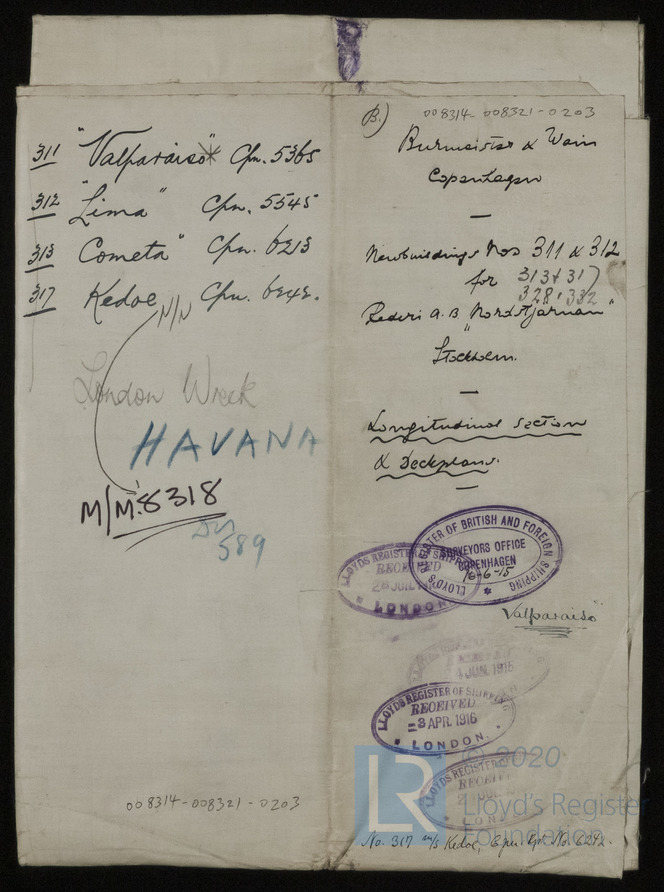 311 "Valparaiso" Cpn. 5365
312 "Lima" Cpn. 5545
313 Cometa" Cpn. 6213
317 Kedoe Cpn. 6242.
N/N
London Wreck
HAVANA
M/M.8318
589
008314-008321-0203
B.) 008314-008321-0203
Burmeister & Wain
Copenhagen
Newbuildings Nos 311 & 312
for 313 & 317
328, 332
Rederi A.B "Nordstjärnan"
Stockholm.
Longitudinal section
& Deckplans.
LLOYD'S REGISTER OF BRITISH AND FOREIGN SHIPPING
SURVEYORS OFFICE
COPENHAGEN
16-6-15
LLOYDS REGISTER OF SHIPPING
RECEIVED
LONDON
Valparaiso"
JUN. 1915
LLOYDS REGISTER OF SHIPPING
RECEIVED
-3 APR. 1916
LONDON.
LLOYDS REGISTER OF
RECEIV
LON
© 2020
LR Lloyd's Register
Foundation
No. 317 m/s Kedoe, Cpn. Rpt. No. 6242.